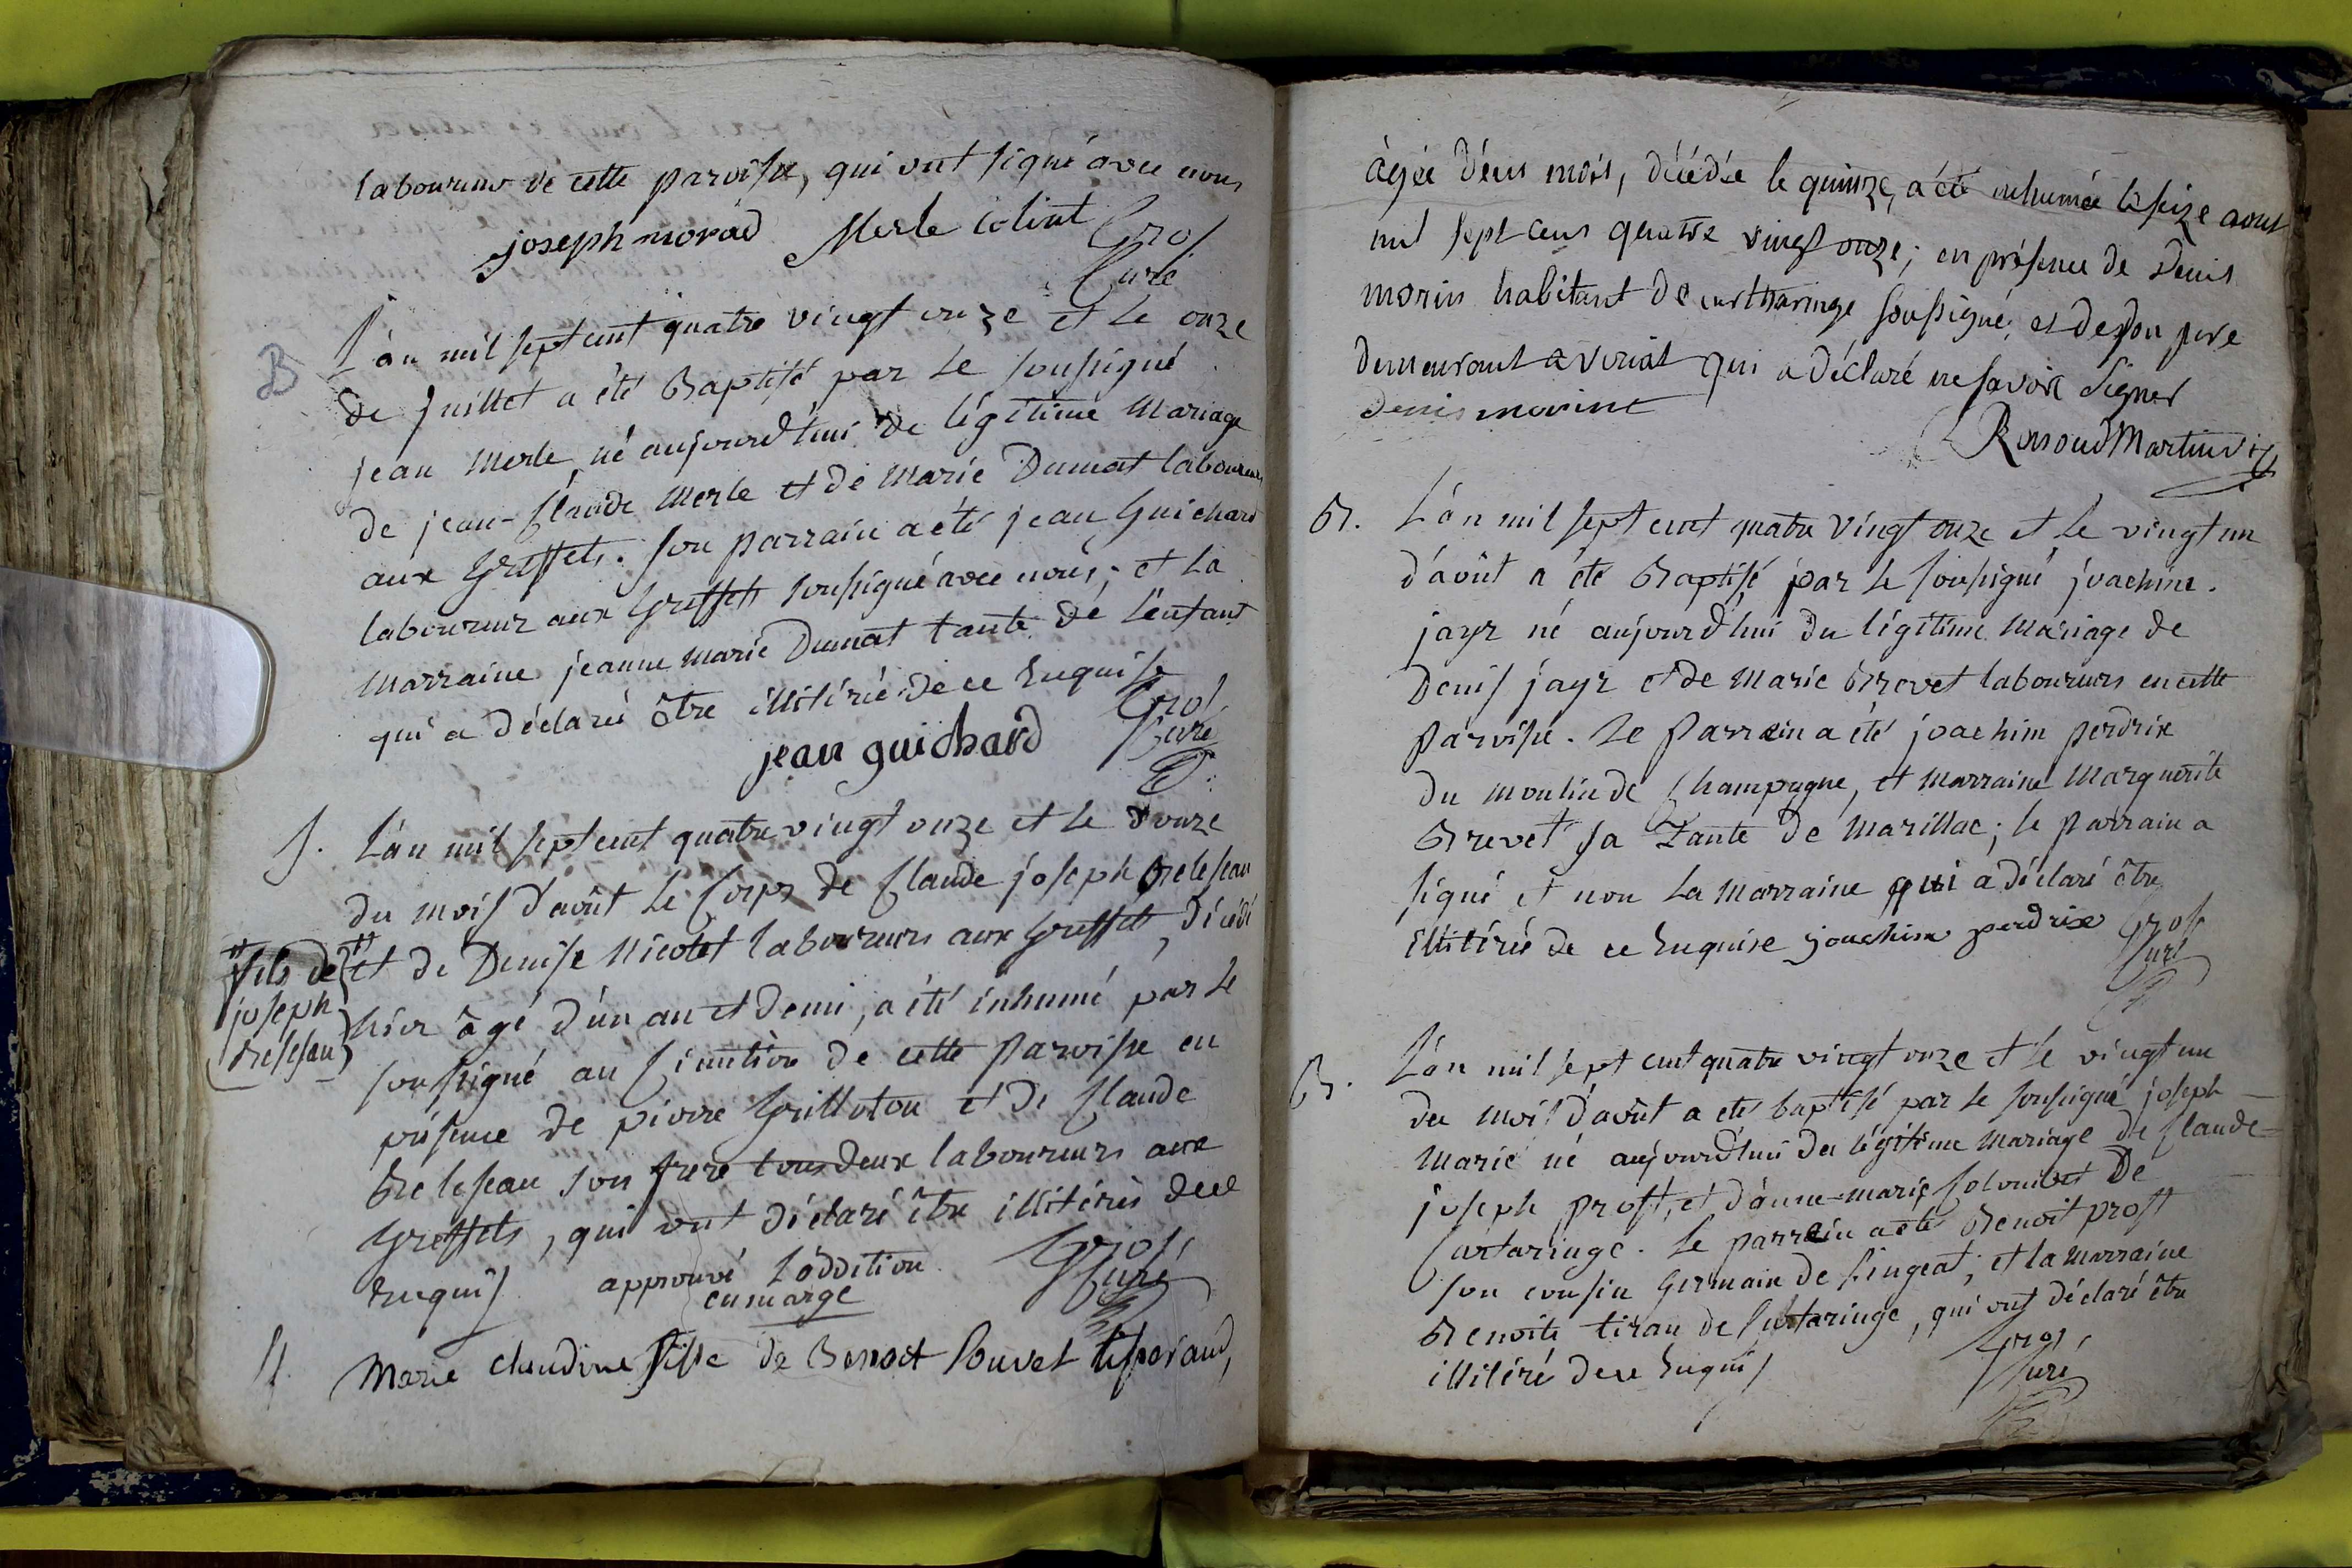 laboureurs de cette paroisse, qui ont signé avec nous
joseph morad Merle Colint Gros
Curé
B L'an mil sept cent quatre vingt onze et le onze
de juillet a été Baptisé par le soussigné
jean Merle né aujourd'hui de légitime Mariage
de jean-Claude Merle et de Marie Dumat laboureurs
aux Greffets. son parrain a été jean Guichard
laboureur aux Greffets soussigné avec nous; et la
Marraine jeanne marie Dumat tante de l'enfant
qui a déclaré être illitérée de ce Enquise
jean guichard Gros
Curé
S. L'an mil sept cent quatre vingt onze et le douze
du mois d'août le Corps de Claude joseph Breleseau
fils de et de Denise Nicolet laboureurs aux Greffets, décédé
joseph
Breleseau
hier âgé d'un an et demi, a été inhumé par le
soussigné au Cimetière de cette paroisse en
présence de pierre Grilloton et de Claude
Breleseau son frere tous deux laboureurs aux
Greffets, qui ont déclaré être illitérés de ce
Enquis approuvé l'addition Gros
en marge Curé
S. Marie claudine fille de Benoet Pouvet tisserand,
âgée d'eus mois, décédée le quinze, a été inhumée le seize aout
mil sept cens quatre vingt onze; en présence de Denis
morin habitant de curtharinge soussigné, et de son pere
demeurant a veriat qui a déclaré ne savoir signer
denis morint
Renoud Martin
B. L'an mil sept cent quatre vingt onze et le vingt un
d'août a été Baptisé par le soussigné joachim
jayr né aujourd'hui du légitime Mariage de
Denis jayr et de Marie Brevet laboureurs en cette
paroisse. Le Parrain a été joachim perdrix
du moulin de Champagne, et Marraine Marguerite
Brevet sa Tante de Marillac; le parrain a
signé et non la Marraine qui a déclaré être
illitérée de ce Enquise joachim perdrix Gros
Curé
B. L'an mil sept cent quatre vingt onze et le vingt un
du mois d'août a été baptisé par le soussigné joseph
Marie né aujourd'hui du légitime Mariage de Claude-
joseph prost, et d'anne-marie Colombet De
Curtaringe. Le parrain a été Benoit prost
son cousin Germain de Cingeat; et la Marraine
Benoite tiran de Curtaringe, qui ont déclaré être
illitéré de ce Enquis Gros
Curé